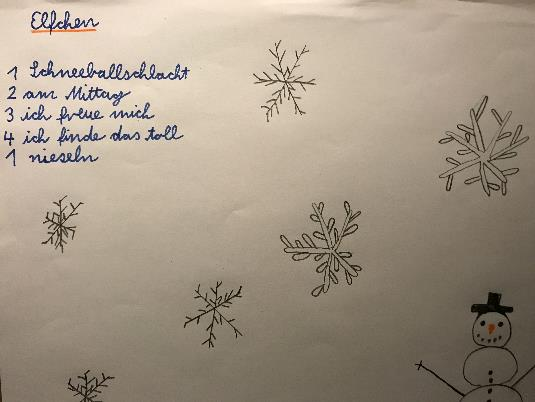 Elfchen
1 Schneeballschlacht
2 am Mittag
3 ich freue mich
4 ich finde das toll
1 nieseln